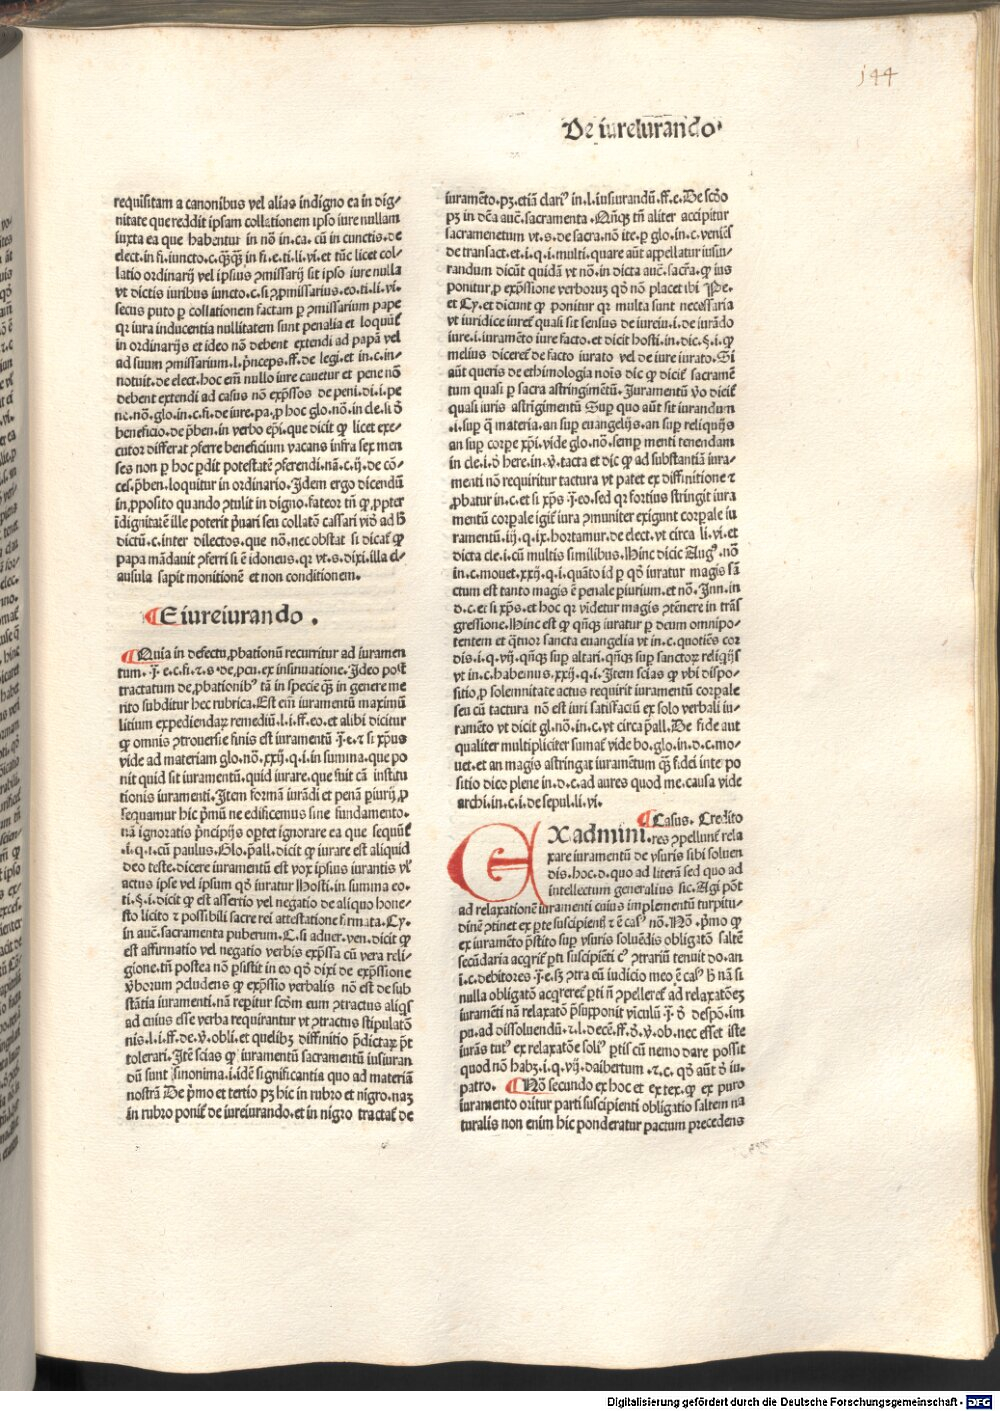 144
De iureiurando·
requisitam a canonibus vel alias indigno ea in dig⸗
nitate que reddit ipsam collationem ipso iure nullam
iuxta ea que habentur in nō in.ca. cū in cunctis.de
elect.in fi.iuncto.c.quāquā in fi.e.ti.li.vi.et tūc licet col⸗
latio ordinarij vel ipsius ꝯmissarij sit ipso iure nulla
vt dictis iuribus iuncto.c.si ꝓpmissarius.eo.ti.li.vi.
secus puto ꝑ collationem factam ꝑ ꝯmissarium pape
qꝛ iura inducentia nullitatem sunt penalia et loquūt̄
in ordinarijs et ideo nō debent extendi ad papā vel
ad suum ꝯmissarium.l.pͥnceps.ff.de legi.et in.c.in⸗
notuit.de elect.hoc em̄ nullo iure cauetur et pene nō
debent extendi ad casus nō expͣssos de peni.di.i.pe
ne.nō.glo.in.c.fi.de iure.pa.ꝓ hoc glo.nō.in cle.ii ð
beneficio.de pͣben.in verbo ep̄i.que dicit ꝙ licet exe⸗
cutor differat ꝯferre beneficium vacans infra sex men
ses non ꝑ hoc ꝑdit potestatē ꝯferendi.nā.c.ij.de cō⸗
ces.pͣben.loquitur in ordinario.Idem ergo dicendū
in ꝓposito quando ꝯtulit in digno.fateor tn̄ ꝙ ꝓpter
īdignitatē ille poterit pͥuari seu collatō cassari viō ad h̄
dictū.c.inter dilectos.que nō.nec obstat si dicat̄ ꝙ
papa mādauit ꝯferri si ē idoneus.qꝛ vt.s.dixi.illa cl⸗
ausula sapit monitionē et non conditionem.
¶E iureiurando.
¶Quia in defectu ꝓbationū recurritur ad iuramen
tum.j̄.e.c.fi.⁊.s.de ꝓcu.ex insinuatione.Ideo post
tractatum de ꝓbationibꝰ tā in specie qꝫ̄ in genere me
rito subditur hec rubrica.Est em̄ iuramentū maximū
litium expediendaꝝ remediū.l.i.ff.eo.et alibi dicitur
ꝙ omnis ꝯtrouersie finis est iuramentū j̄.e.⁊ si xp̄us
vide ad materiam glo.nō.xxij.q.i.in summa.que po
nit quid sit iuramentū.quid iurare.que fuit cā institu
tionis iuramenti.Item formā iurādi et penā ꝑiurij ꝓ
sequamur hic pͥmū ne edificemus sine fundamento.
nā ignoratis pͥncipijs oꝑtet ignorare ea que sequūt̄
.i.q.i.cū paulus.Glo.pͣall.dicit ꝙ iurare est aliquid
deo teste.dicere iuramentū est vox ipsius iurantis vl̄
actus ipse vel ipsum qð iuratur Hosti.in summa eo.
ti.§.i.dicit ꝙ est assertio vel negatio de aliquo hone⸗
sto licito ⁊ possibili sacre rei attestatione firmata.Cy.
in auc̄.sacramenta puberum.C.si aduer.ven.dicit ꝙ
est affirmatio vel negatio verbis expͣssa cū vera reli⸗
gione.tn̄ postea nō ꝑsistit in eo qð dixi de expͣssione
v̓borum ꝯcludens ꝙ expͣssio verbalis nō est de sub
stātia iuramenti.nā reꝑitur scðm eum ꝯtractus aliqs
ad cuius esse verba requirantur vt ꝯtractus stipulatō
nis.l.i.ff.de.v̓.obli.et quelibꝫ diffinitio pͣdictaꝝ pōt
tolerari.Itē scias ꝙ iuramentū sacramentū iusiuran
dū sunt sinonima.i.idē significantia quo ad materiā
nostrā De pͥmo et tertio pꝫ hic in rubro et nigro.naꝫ
in rubro ponit̄ de iureiurando.et in nigro tractat̄ de
iuramēto.pꝫ.etiā clariꝰ in.l.iusiurandū.ff.e.De scðo
pꝫ in dc̄a auc̄.sacramenta.Qn̄qꝫ tn̄ aliter accipitur
sacramenetum vt.s.de sacra.nō ite.ꝑ glo.in.c.veniēs
de transact.et.i.q.i.multi.quare aūt appellatur iusiu⸗
randum dicūt quidā vt nō.in dicta auc̄.sacr̄a.ꝙ ius
ponitur ꝑ expͣssione verboruꝫ qð nō placet ibi Pe.
et Cy.et dicunt ꝙ ponitur qꝛ multa sunt necessaria
vt iuridice iuret̄ quasi sit sensus de iureiu.i.de iurādo
iure.i.iuramēto iure facto.et dicit hosti.in dic.§.i.ꝙ
melius diceret̄ de facto iurato vel de iure iurato.Si
aūt queris de ethimologia noīs dic ꝙ dicit̄ sacramē
tum quasi ꝑ sacra astringimētū.Iuramentū v̓o dicit̄
quasi iuris astrīgimentū Suꝑ quo aūt sit iurandum
.i.suꝑ q̄ materia.an suꝑ euangelijs.an suꝑ reliquijs
an suꝑ corpe xp̄i.vide glo.nō.semꝑ menti tenendam
in cle.i.ð here.in.v̓.tacta et dic ꝙ ad substantiā iura⸗
menti nō requiritur tactura vt patet ex diffinitione ⁊
ꝓbatur in.c.et si xp̄s.j̄.eo.sed qꝛ fortius stringit iura
mentū corꝑale igit̄ iura ꝯmuniter exigunt corꝑale iu
ramentū.iij.q.ix.hortamur.de elect.vt circa li.vi.et
dicta cle.i.cū multis similibus.Hinc dicic Augꝰ.nō
in.c.mouet.xxij.q.i.quāto id ꝑ qð iuratur magis sā
ctum est tanto magis ē penale ꝑiurium.et nō.Inn.in
d.c.et si xp̄s.et hoc qꝛ videtur magis ꝯtēnere in trās
gressione.Hinc est ꝙ qn̄qꝫ iuratur ꝑ deum omnipo⸗
tentem et qͣtuor sancta euangelia vt in.c.quotiēs cor
dis.i.q.vij.qn̄qꝫ suꝑ altari.qn̄qꝫ suꝑ sanctoꝝ reliqijs
vt in.c.habemus.xxij.q.i.Item scias ꝙ vbi dispo⸗
sitio ꝓ solemnitate actus requirit iuramentū corꝑale
seu cū tactura nō est iuri satisfaciū ex solo verbali iu⸗
ramēto vt dicit gl.nō.in.c.vt circa pͣall.De fide aut
qualiter multipliciter sumat̄ vide bo.glo.in.d.c.mo⸗
uet.et an magis astringat iuramētum qꝫ̄ fidei inte po
sitio dico plene in.d.c.ad aures quod me.causa vide
archi.in.c.i.de sepul.li.vi.
¶Casus. Credito
EX admini.res ꝯpellunt̄ rela
xare iuramentū de vsuris sibi soluen
dis.hoc.d.quo ad literā sed quo ad
intellectum generalius sic.Agi pōt
ad relaxationē iuramenti cuius implementū turpitu⸗
dinē ꝯtinet ex ꝑte suscipientꝭ ⁊ ē casꝰ nō.Nō.pͥmo ꝙ
ex iuramēto pͣstito suꝑ vsuris soluēdis obligatō saltē
secūdaria acqrit̄ ꝑti suscipiēti cꝰ ꝯtrariū tenuit do.an
i.c.debitores.j̄.e.sꝫ ꝯtra eū iudicio meo ē casꝰ h̄ nā si
nulla obligatō acqreret̄ ꝑti n̄ ꝯpelleret̄ ad relaxatōeꝫ
iuramēti nā relaxatō pͣsupponit viculū j̄.ð despō.im
pu.ad dissoluendū.⁊.l.decē.ff.ð.v̓.ob.nec esset iste
iurās tutꝰ ex relaxatōe soliꝰ ꝑtis cū nemo dare possit
quod nō habꝫ.i.q.vij.daibertum.⁊.c.qð aūt ð iu.
patro. ¶Nō secundo ex hoc et ex tex.ꝙ ex puro
iuramento oritur parti suscipienti obligatio saltem na
turalis non enim hic ponderatur pactum precedens
Digitalisierung gefördert durch die Deutsche Forschungsgemeinschaft - DFG